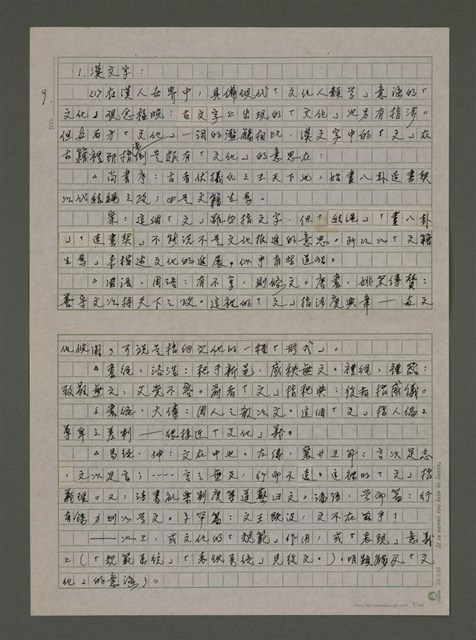 1. 漢文字:
9.
(1) 在漢人世界中,具備現代「文化人類學」意涵的「
文化」觀念極晚:古文字上出現的「文化」也另有指涉。
但與西方「文化」一詞的濫觴相比,漢文字中的「文」在
古籍裡那指涉倒是頗有「文化」的意思在:
▲尚書序:古者伏犧氏之王天下也,始畫八卦造書契
以代結繩之政,由是文籍生焉。
案:這個「文」雖也指文字,但「結繩」「畫八卦
」「造書契」不能說不是文化推進的意思。所以以「文籍
生焉」來描述文化的進展,似乎有些道理。
▲國語、周語:有不享,則修文。唐書、姚
文以得天下之政。這裡的「文」指法度典章——
化似同,可說是指細文化的一種「形式」。
▲書經、洛誥:祀于新邑,咸秩無文。禮經、禮器:
無文,父黨不容。前者「文」指秩典;後者指威儀。
▲禮經、大傳:周人之 文。這個「文」指人倫之
尊卑之差別——很接近「文化」義。
▲易經、坤:文在中也。左傳、襄廿五年:言以足志
,文以足言:……言之無文,行而不遠。這裡的「文」指
文:詩書禮樂制度等道藝曰文。論語、學而篇:行
有餘力則以學文。子罕篇:文王既沒,文不在茲乎!
——以上,或文化的「規範」作用,或「表現」意義
上(「規範系統」「表現系統」見後文。),明顯觸及「文
化」的意涵)。
It is never too late to learn.